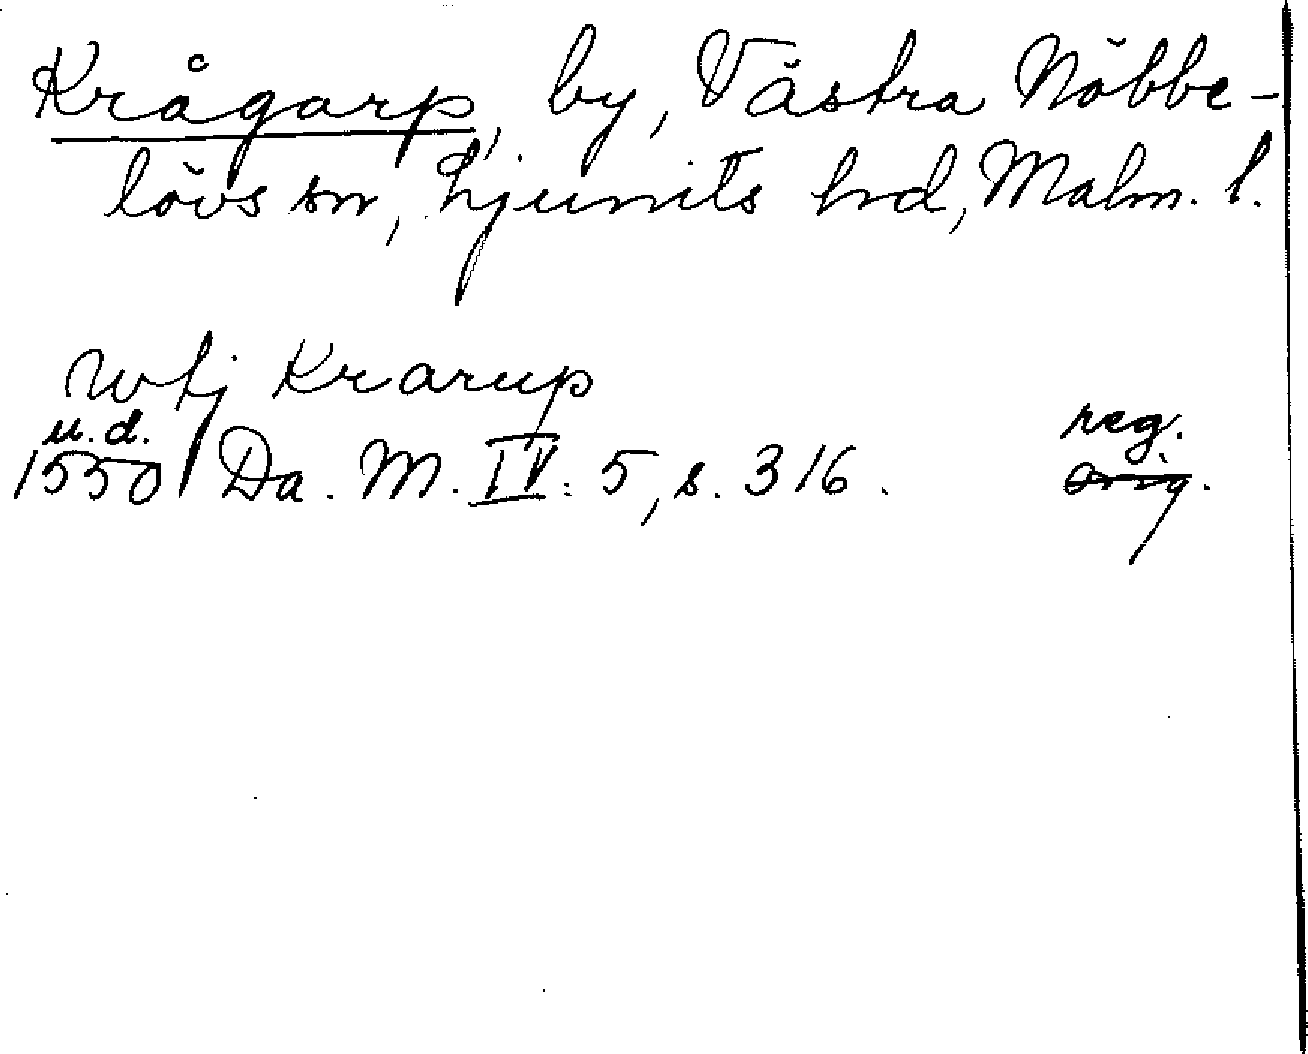 Krågarp, by, Västra Nöbbe-
lövs sn, Ljunits hd, Malm. l.
wtj Krarup
u.d.
1550 Da. M. IV: 5, s. 316.
reg.
orig.